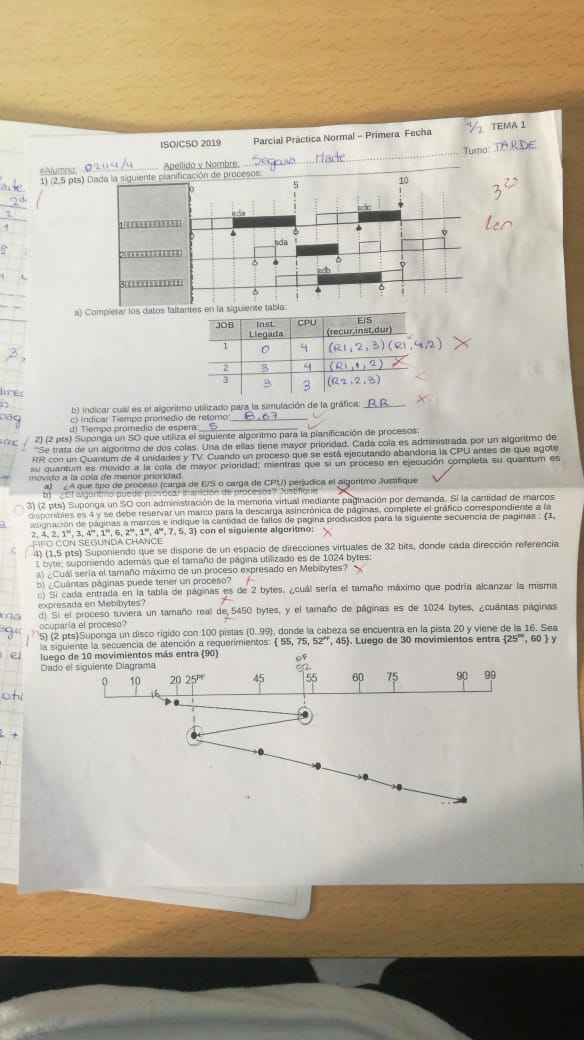 ISO/CSO 2019 Parcial Práctica Normal – Primera Fecha 1/2 TEMA 1
#Alumno: 02114/4 Apellido y Nombre: Segura Maite Turno: TARDE
1) (2,5 pts) Dada la siguiente planificación de procesos:
0 5 10
sda sdc
1
sda
2
sdb
3
a) Completar los datos faltantes en la siguiente tabla:
JOB Inst. Llegada CPU E/S (recur,inst,dur)
1 0 4 (R1,2,3)(R1,4,2)
2 3 4 (R1,1,2)
3 3 3 (R2,2,3)
b) Indicar cuál es el algoritmo utilizado para la simulación de la gráfica: RR
c) Indicar Tiempo promedio de retorno: 8,67
d) Tiempo promedio de espera: 5
2) (2 pts) Suponga un SO que utiliza el siguiente algoritmo para la planificación de procesos:
"Se trata de un algoritmo de dos colas. Una de ellas tiene mayor prioridad. Cada cola es administrada por un algoritmo de
RR con un Quantum de 4 unidades y TV. Cuando un proceso que se está ejecutando abandona la CPU antes de que agote
su quantum es movido a la cola de mayor prioridad; mientras que si un proceso en ejecución completa su quantum es
movido a la cola de menor prioridad.
a) ¿A que tipo de proceso (carga de E/S o carga de CPU) perjudica el algoritmo Justifique
b) ¿El algoritmo puede provocar inanición de procesos? Justifique
3) (2 pts) Suponga un SO con administración de la memoria virtual mediante paginación por demanda. Si la cantidad de marcos
disponibles es 4 y se debe reservar un marco para la descarga asincrónica de páginas, complete el gráfico correspondiente a la
asignación de páginas a marcos e indique la cantidad de fallos de pagina producidos para la siguiente secuencia de paginas : {1,
2, 4, 2, 1ᴹ, 3, 4ᴹ, 1ᴹ, 6, 2ᴹ, 1ᴹ, 4ᴹ, 7, 5, 3} con el siguiente algoritmo:
FIFO CON SEGUNDA CHANCE
4) (1,5 pts) Suponiendo que se dispone de un espacio de direcciones virtuales de 32 bits, donde cada dirección referencia
1 byte; suponiendo además que el tamaño de página utilizado es de 1024 bytes:
a) ¿Cuál sería el tamaño máximo de un proceso expresado en Mebibytes?
b) ¿Cuántas páginas puede tener un proceso?
c) Si cada entrada en la tabla de páginas es de 2 bytes, ¿cuál sería el tamaño máximo que podría alcanzar la misma
expresada en Mebibytes?
d) Si el proceso tuviera un tamaño real de 5450 bytes, y el tamaño de páginas es de 1024 bytes, ¿cuántas páginas
ocuparía el proceso?
5) (2 pts)Suponga un disco rígido con 100 pistas (0..99), donde la cabeza se encuentra en la pista 20 y viene de la 16. Sea
la siguiente la secuencia de atención a requerimientos: { 55, 75, 52ᴾᶠ, 45}. Luego de 30 movimientos entra {25ᴾᶠ, 60 } y
luego de 10 movimientos más entra {90}
Dado el siguiente Diagrama
PF
52
0 10 20 25ᴾᶠ 45 55 60 75 90 99
16